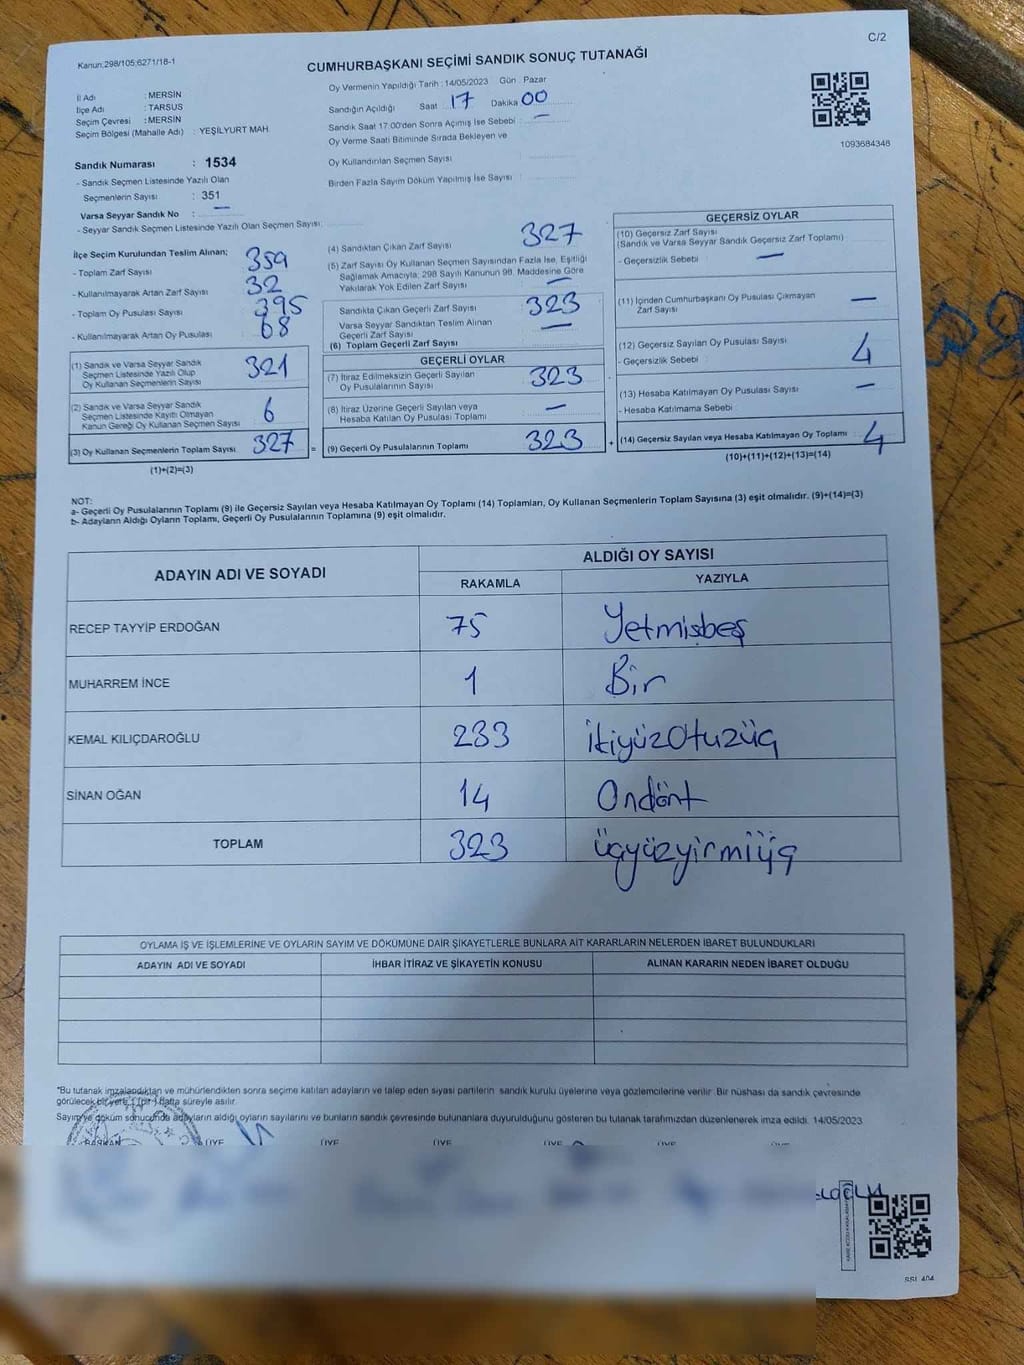 C/2
Kanun:298/105;6271/18-1
CUMHURBAŞKANI SEÇİMİ SANDIK SONUÇ TUTANAĞI
Oy Vermenin Yapıldığı Tarih : 14/05/2023 Gün Pazar
İl Adı : MERSİN
İlçe Adı : TARSUS
Seçim Çevresi : MERSİN
Seçim Bölgesi (Mahalle Adı) : YEŞİLYURT MAH.
Sandığın Açıldığı Saat 17 Dakika 00
Sandık Saat 17:00'den Sonra Açımış İse Sebebi : —
Oy Verme Saati Bitiminde Sırada Bekleyen ve
Oy Kullandırılan Seçmen Sayısı :
Birden Fazla Sayım Döküm Yapılmış İse Sayısı :
1093684348
Sandık Numarası : 1534
- Sandık Seçmen Listesinde Yazılı Olan
Seçmenlerin Sayısı : 351
Varsa Seyyar Sandık No : —
- Seyyar Sandık Seçmen Listesinde Yazılı Olan Seçmen Sayısı:
İlçe Seçim Kurulundan Teslim Alınan;
- Toplam Zarf Sayısı 359
- Kullanılmayarak Artan Zarf Sayısı 32
- Toplam Oy Pusulası Sayısı 395
- Kullanılmayarak Artan Oy Pusulası 68
(1) Sandık ve Varsa Seyyar Sandık
Seçmen Listesinde Yazılı Olup
Oy Kullanan Seçmenlerin Sayısı 321
(2) Sandık ve Varsa Seyyar Sandık
Seçmen Listesinde Kayıtlı Olmayan
Kanun Gereği Oy Kullanan Seçmen Sayısı 6
(3) Oy Kullanan Seçmenlerin Toplam Sayısı 327
(1)+(2)=(3)
=
(4) Sandıktan Çıkan Zarf Sayısı 327
(5) Zarf Sayısı Oy Kullanan Seçmen Sayısından Fazla İse, Eşitliği
Sağlamak Amacıyla; 298 Sayılı Kanunun 98. Maddesine Göre
Yakılarak Yok Edilen Zarf Sayısı : —
Sandıkta Çıkan Geçerli Zarf Sayısı 323
Varsa Seyyar Sandıktan Teslim Alınan
Geçerli Zarf Sayısı —
(6) Toplam Geçerli Zarf Sayısı
GEÇERLİ OYLAR
(7) İtiraz Edilmeksizin Geçerli Sayılan
Oy Pusulalarının Sayısı 323
(8) İtiraz Üzerine Geçerli Sayılan veya
Hesaba Katılan Oy Pusulası Toplamı —
(9) Geçerli Oy Pusulalarının Toplamı 323
+
GEÇERSİZ OYLAR
(10) Geçersiz Zarf Sayısı
(Sandık ve Varsa Seyyar Sandık Geçersiz Zarf Toplamı)
- Geçersizlik Sebebi : —
(11) İçinden Cumhurbaşkanı Oy Pusulası Çıkmayan
Zarf Sayısı —
(12) Geçersiz Sayılan Oy Pusulası Sayısı 4
- Geçersizlik Sebebi :
(13) Hesaba Katılmayan Oy Pusulası Sayısı —
- Hesaba Katılmama Sebebi :
(14) Geçersiz Sayılan veya Hesaba Katılmayan Oy Toplamı 4
(10)+(11)+(12)+(13)=(14)
NOT:
a- Geçerli Oy Pusulalarının Toplamı (9) ile Geçersiz Sayılan veya Hesaba Katılmayan Oy Toplamı (14) Toplamları, Oy Kullanan Seçmenlerin Toplam Sayısına (3) eşit olmalıdır. (9)+(14)=(3)
b- Adayların Aldığı Oyların Toplamı, Geçerli Oy Pusulalarının Toplamına (9) eşit olmalıdır.
ADAYIN ADI VE SOYADI
ALDIĞI OY SAYISI
RAKAMLA YAZIYLA
RECEP TAYYİP ERDOĞAN 75 Yetmişbeş
MUHARREM İNCE 1 Bir
KEMAL KILIÇDAROĞLU 233 ikiyüzOtuzüç
SİNAN OĞAN 14 Ondört
TOPLAM 323 üçyüzyirmiüç
OYLAMA İŞ VE İŞLEMLERİNE VE OYLARIN SAYIM VE DÖKÜMÜNE DAİR ŞİKAYETLERLE BUNLARA AİT KARARLARIN NELERDEN İBARET BULUNDUKLARI
ADAYIN ADI VE SOYADI İHBAR İTİRAZ VE ŞİKAYETİN KONUSU ALINAN KARARIN NEDEN İBARET OLDUĞU
*Bu tutanak imzalandıktan ve mühürlendikten sonra seçime katılan adayların ve talep eden siyasi partilerin sandık kurulu üyelerine veya gözlemcilerine verilir. Bir nüshası da sandık çevresinde
görülecek bir yere 1 (bir) hafta süreyle asılır.
Sayım ve döküm sonucunda adayların aldığı oyların sayılarını ve bunların sandık çevresinde bulunanlara duyurulduğunu gösteren bu tutanak tarafımızdan düzenlenerek imza edildi. 14/05/2023
BAŞKAN ÜYE ÜYE ÜYE ÜYE ÜYE ÜYE